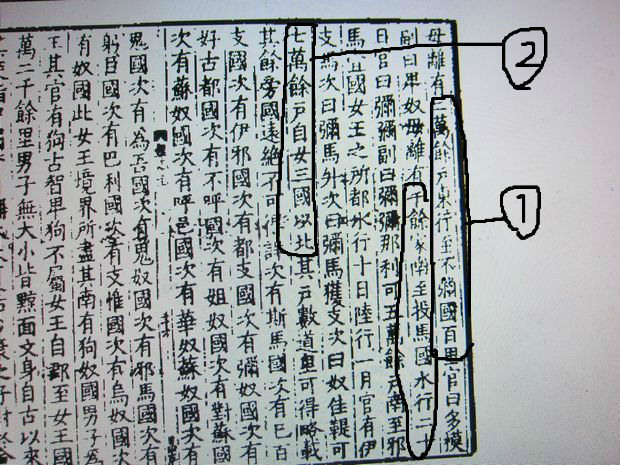 母離有二萬餘戸東行至不彌國百里官曰多模
副曰卑奴母離有千餘家南至投馬國水行二十
日官曰彌彌副曰彌彌那利可五萬餘戸南至邪
馬壹國女王之所都水行十日陸行一月官有伊
支馬次曰彌馬升次曰彌馬獲支次曰奴佳鞮可
七萬餘戸自女王國以北其戸數道里可得略載
其餘旁國遠絕不可得詳次有斯馬國次有已百
支國次有伊邪國次有都支國次有彌奴國次有
好古都國次有不呼國次有姐奴國次有對蘇國
次有蘇奴國次有呼邑國次有華奴蘇奴國次有
鬼國次有為吾國次有鬼奴國次有邪馬國次有
躬臣國次有巴利國次有支惟國次有烏奴國次
有奴國此女王境界所盡其南有狗奴國男子為
王其官有狗古智卑狗不屬女王自郡至女王國
萬二千餘里男子無大小皆黥面文身自古以來
2
1